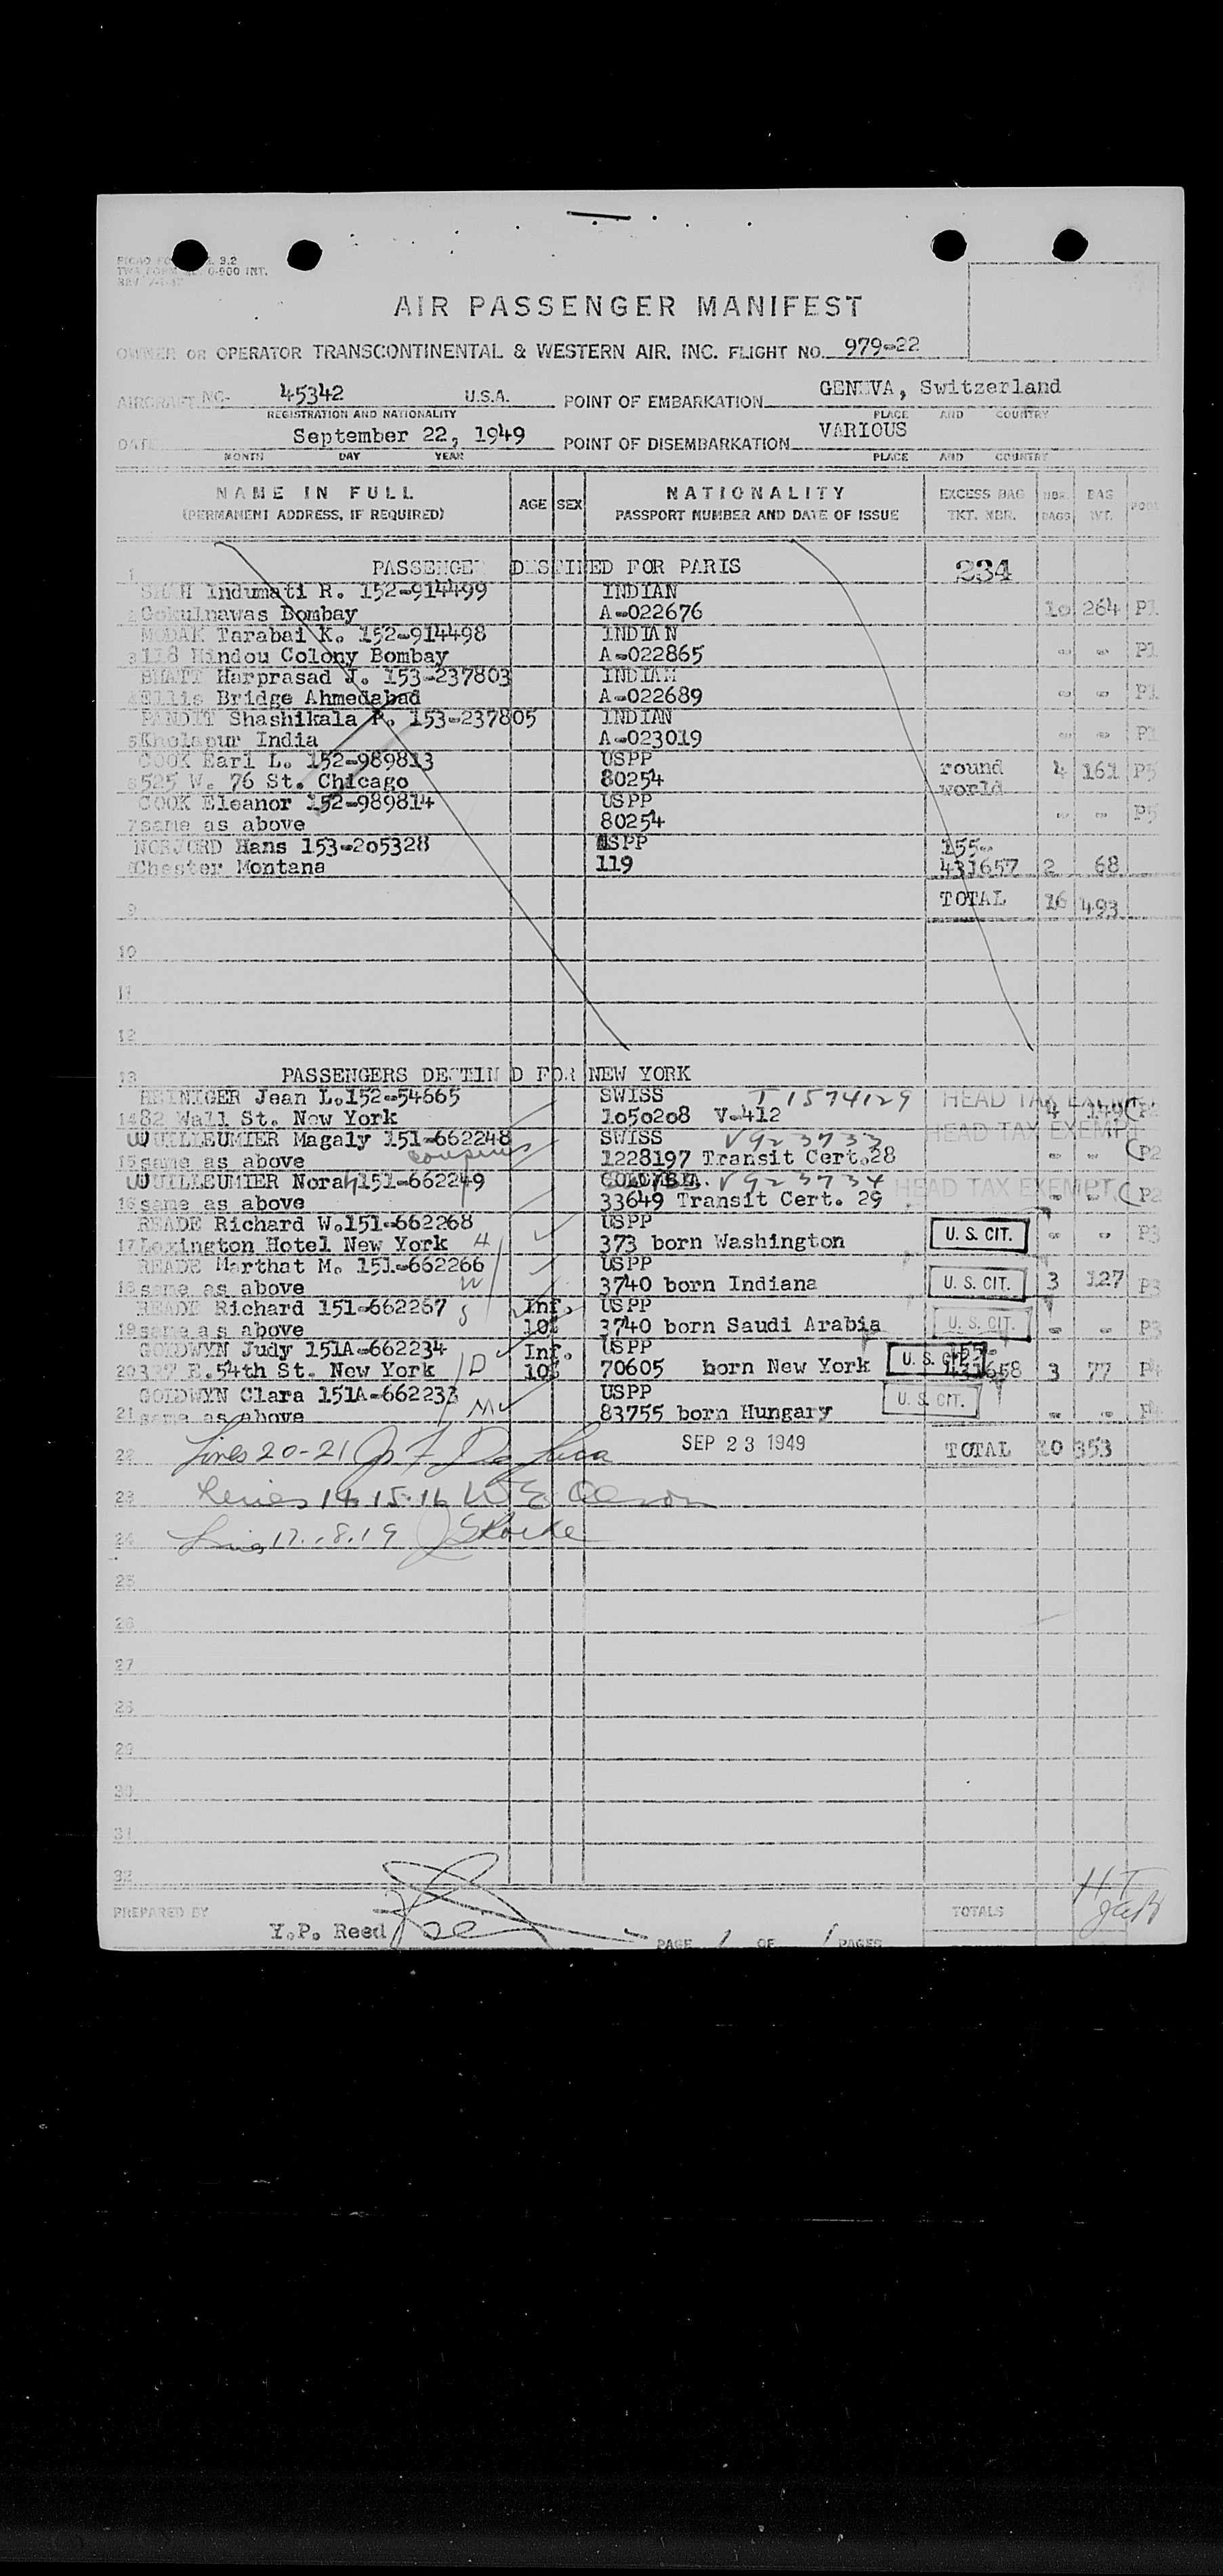 AIR PASSENGER MANIFEST
OWNER OR OPERATOR TRANSCONTINENTAL & WESTERN AIR. INC. FLIGHT NO. 979-22
AIRCRAFT NC- 45342 U.S.A. POINT OF EMBARKATION GENEVA, Switzerland
REGISTRATION AND NATIONALITY PLACE AND COUNTRY
DATE September 22, 1949 POINT OF DISEMBARKATION VARIOUS
MONTH DAY YEAR PLACE AND COUNTRY
NAME IN FULL AGE SEX NATIONALITY EXCESS BAG NBR. BAG
(PERMANENT ADDRESS, IF REQUIRED) PASSPORT NUMBER AND DATE OF ISSUE TKT. NBR. BAGS WT.
1 PASSENGE DESTINED FOR PARIS 234
SHAH Indumati R. 152-914499 INDIAN
2 Gokulnawas Bombay A-022676 10 264 P1
MODAK Tarabai K. 152-914498 INDIAN
3 118 Hindou Colony Bombay A-022865 - - P1
BHATT Harprasad J. 153-237803 INDIAN
4 Ellis Bridge Ahmedabad A-022689 - - P1
PANDIT Shashikala P. 153-237805 INDIAN
5 Kholapur India A-023019 - - P1
COOK Earl L. 152-989813 USPP round
6 525 W. 76 St. Chicago 80254 world 4 161 P5
COOK Eleanor 152-989814 USPP
7 same as above 80254 - - P5
Hans 153-205328 USPP 155-
Chester Montana 119 431657 2 68
9 TOTAL 16 493
10
11
12
13 PASSENGERS DESTIN D FOR NEW YORK
REINIGER Jean L.152-54665 SWISS T1574129 HEAD TAX EXEMPT
14 82 Wall St. New York 1050208 V-412 4 149 P2
WUILLEUMIER Magaly 151-662248 SWISS V923733 HEAD TAX EXEMPT
cousins
15 same as above 1228197 Transit Cert.28 - - P2
WUILLEUMIER Nora 151-662249 V923734 HEAD TAX EXEMPT
16 same as above 33649 Transit Cert. 29 - - P2
READE Richard W.151-662268 USPP U. S. CIT.
17 Lexington Hotel New York H 373 born Washington - - P3
READE Marthat M. 151-662266 USPP U. S. CIT.
18 same as above W 3740 born Indiana 3 127 P3
READE Richard 151-662267 S Inf. USPP U. S. CIT.
19 same as above 10% 3740 born Saudi Arabia - - P3
GOLDWYN Judy 151A-662234 Inf. USPP U. S. CIT. 155-
20 327 E.54th St. New York D 10% 70605 born New York 431658 3 77 P4
GOLDWYN Clara 151A-662233 USPP U. S. CIT.
21 same as above M 83755 born Hungary - - P4
22 Lines 20-21 SEP 23 1949 TOTAL 10 353
23 Lines 14 15.16 W E Olson
24 Lines 17.18.19
25
26
27
28
29
30
31
32
PREPARED BY Y.P. Reed TOTALS HT
PAGE 1 OF 1 PAGES